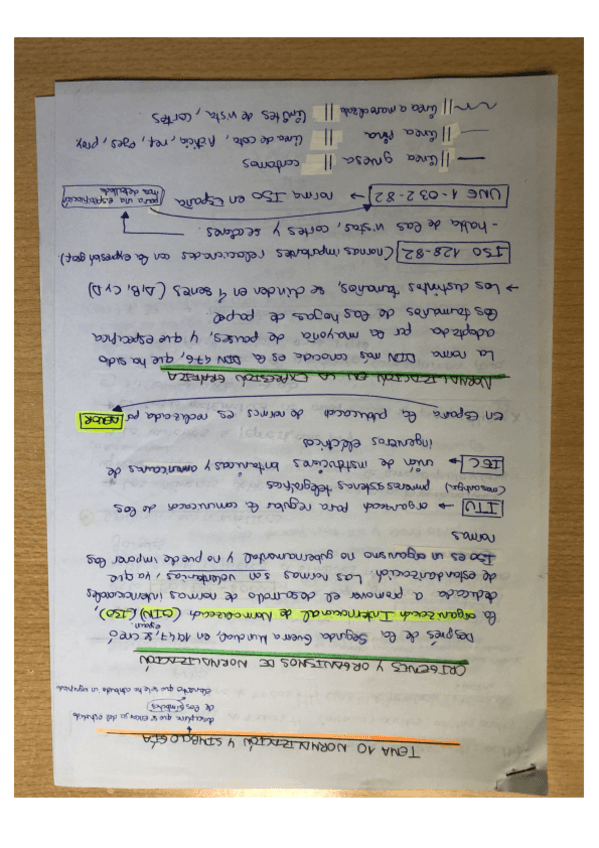 TEMA 10 NORMALIZACIÓN Y SIMBOLOGÍA
disciplina que se encarga del estudio
de los símbolos
elemento que se le ha atribuido un significado
ORÍGENES Y ORGANISMOS DE NORMALIZACIÓN
Después de la Segunda Guerra Mundial, en 1947, se creó
la organización Internacional de Normalización (OIN) (ISO),
dedicada a promover el desarrollo de normas internacionales
de estandarización. Las normas son voluntarias, ya que
ISO es un organismo no gubernamental y no puede imponer las
normas
ITU → organización para regular la comunicación de los
primeros sistemas telegráficos
IEC → unión de instituciones británicas y americanas de
ingenieros eléctricos
En España la publicación de normas es realizada por AENOR
NORMALIZACIÓN EN LA EXPRESIÓN GRÁFICA
La norma DIN más conocida es la DIN 476, que ha sido
adoptada por la mayoría de países, y que especifica
los tamaños de las hojas de papel
→ Los distintos tamaños, se dividen en 4 series (A, B, C y D)
ISO 128-82 (normas importantes relacionadas con la expresión graf.)
- habla de las vistas, cortes y secciones.
UNE 1-032-82 → norma ISO en España
para una especificación
más detallada
línea gruesa || contornos
línea fina || línea de cota, ficticia, ref, ejes, proy
línea a mano alzada || límites de vista, cortes